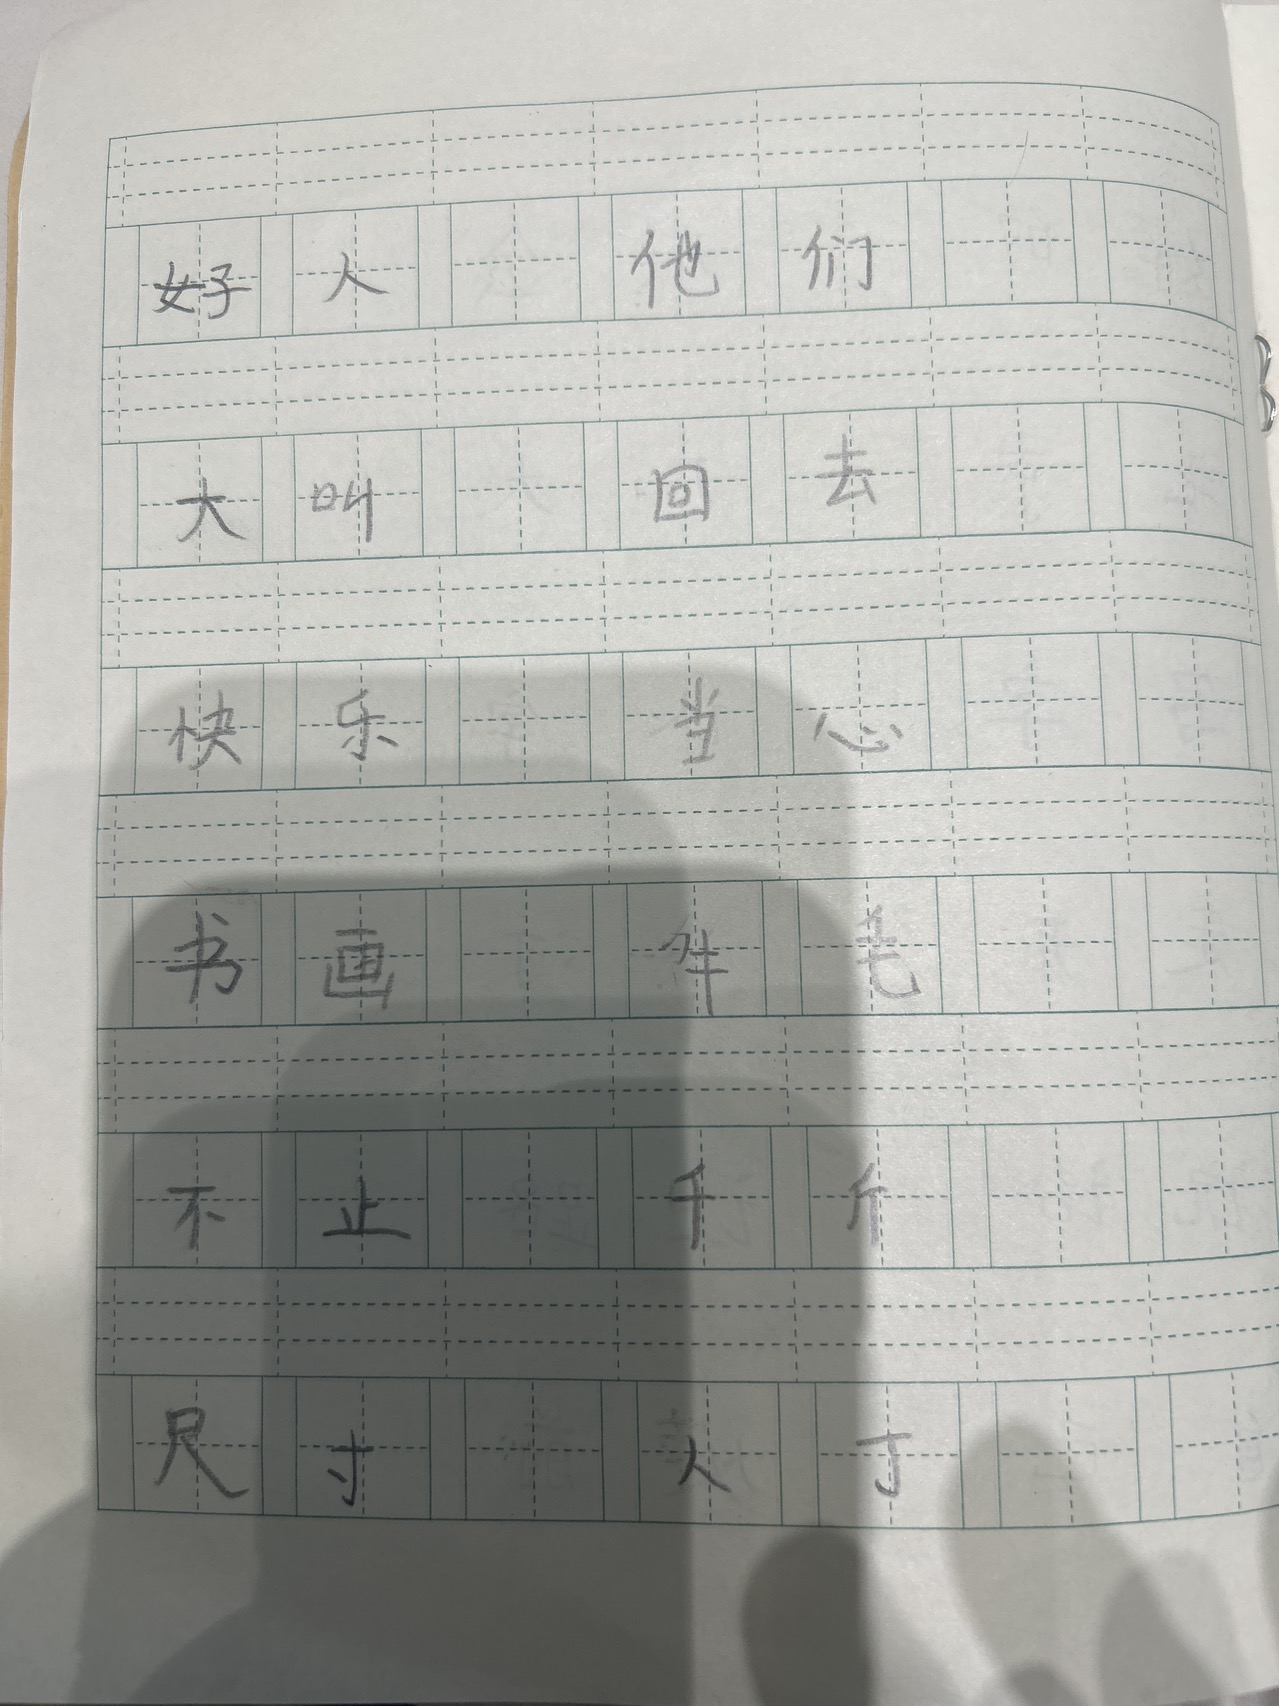 好人 他们
大叫 回去
快乐 当心
书画 牛毛
不止 千斤
尺寸 人丁